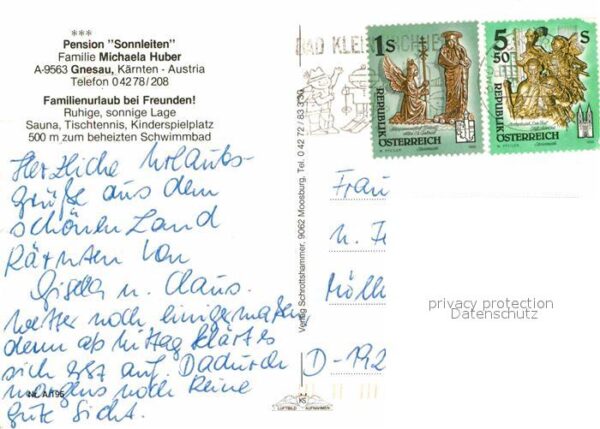 ***
Pension "Sonnleiten"
Familie Michaela Huber
A-9563 Gnesau, Kärnten - Austria
Telefon 0 42 78 / 208
Familienurlaub bei Freunden!
Ruhige, sonnige Lage
Sauna, Tischtennis, Kinderspielplatz
500 m zum beheizten Schwimmbad
Herzliche Urlaubs-
grüße aus dem
schönen Land
Kärnten von
Gisela u. Claus.
Wetter noch einigermaßen,
denn ab Mittag klärt es
sich erst auf. Dadurch
morgens noch keine
gute Sicht.
NL A/195
Verlag Schrottshammer, 9062 Moosburg, Tel. 0 42 72 / 83 3 30
KS
LUFTBILD AUFNAHMEN
BAD KLEIN
1 S
REPUBLIK
ÖSTERREICH
5 50 S
REPUBLIK
ÖSTERREICH
Frau
u. Fe
Mölln
D-192
privacy protection
Datenschutz